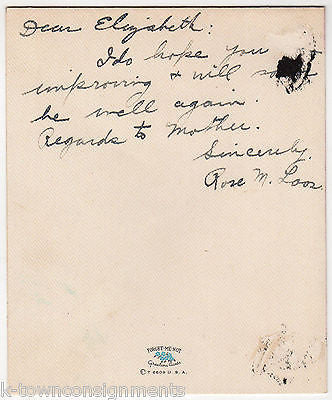 Dear Elizabeth:
I do hope you
improving & will
be well again.
Regards to Mother.
Sincerely,
Rose M. Loos
FORGET-ME-NOT
Greeting Cards
U. S. A.
k-townconsignments